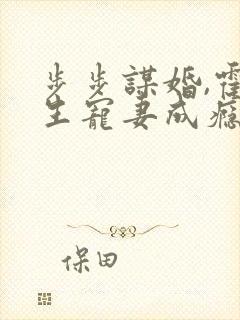 步步謀婚,霍
生寵妻成癮
保田